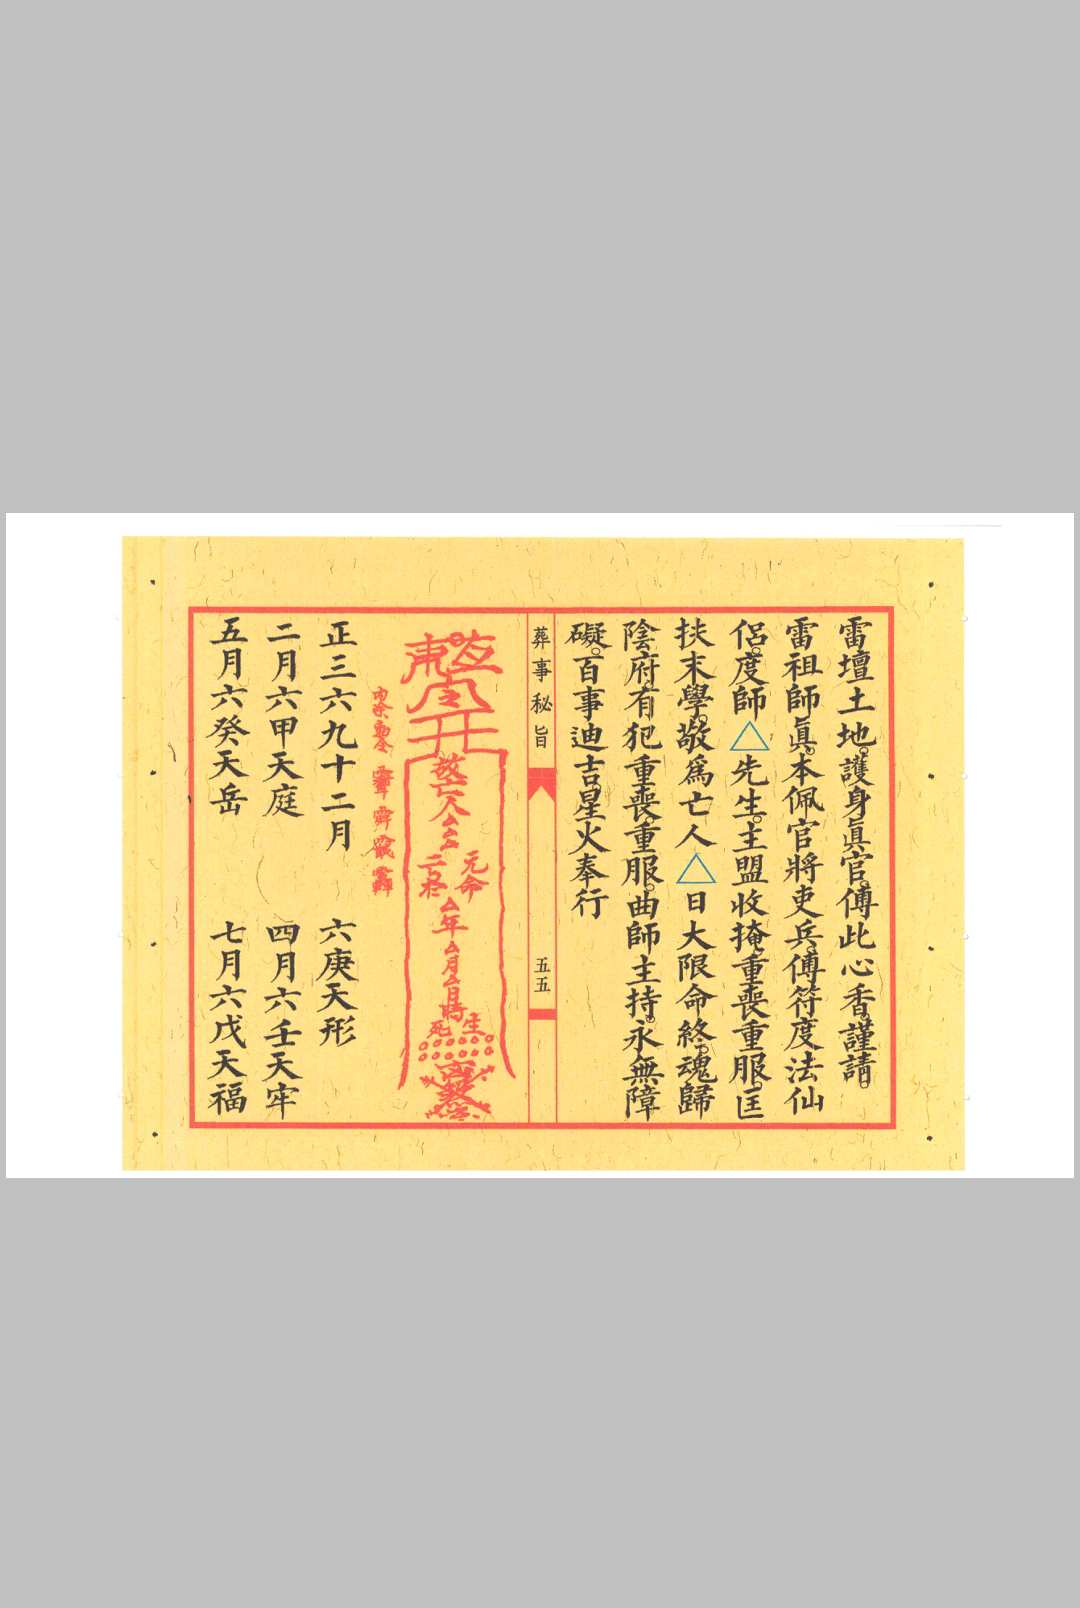 雷壇土地。護身眞官。傅此心香。謹請。
雷祖師眞。本佩官將吏兵。傅符度法仙
侶。度師△先生。主盟收掩重喪重服。匡
扶末學。敬爲亡人△日大限命終。魂歸
陰府。有犯重喪重服。曲師主持。永無障
礙。百事迪吉。星火奉行
葬事秘旨
五五
敬亡人厶厶
元命
厶年厶月厶日時
生
死
正三六九十二月 六庚天形
二月六甲天庭 四月六壬天牢
五月六癸天岳 七月六戊天福